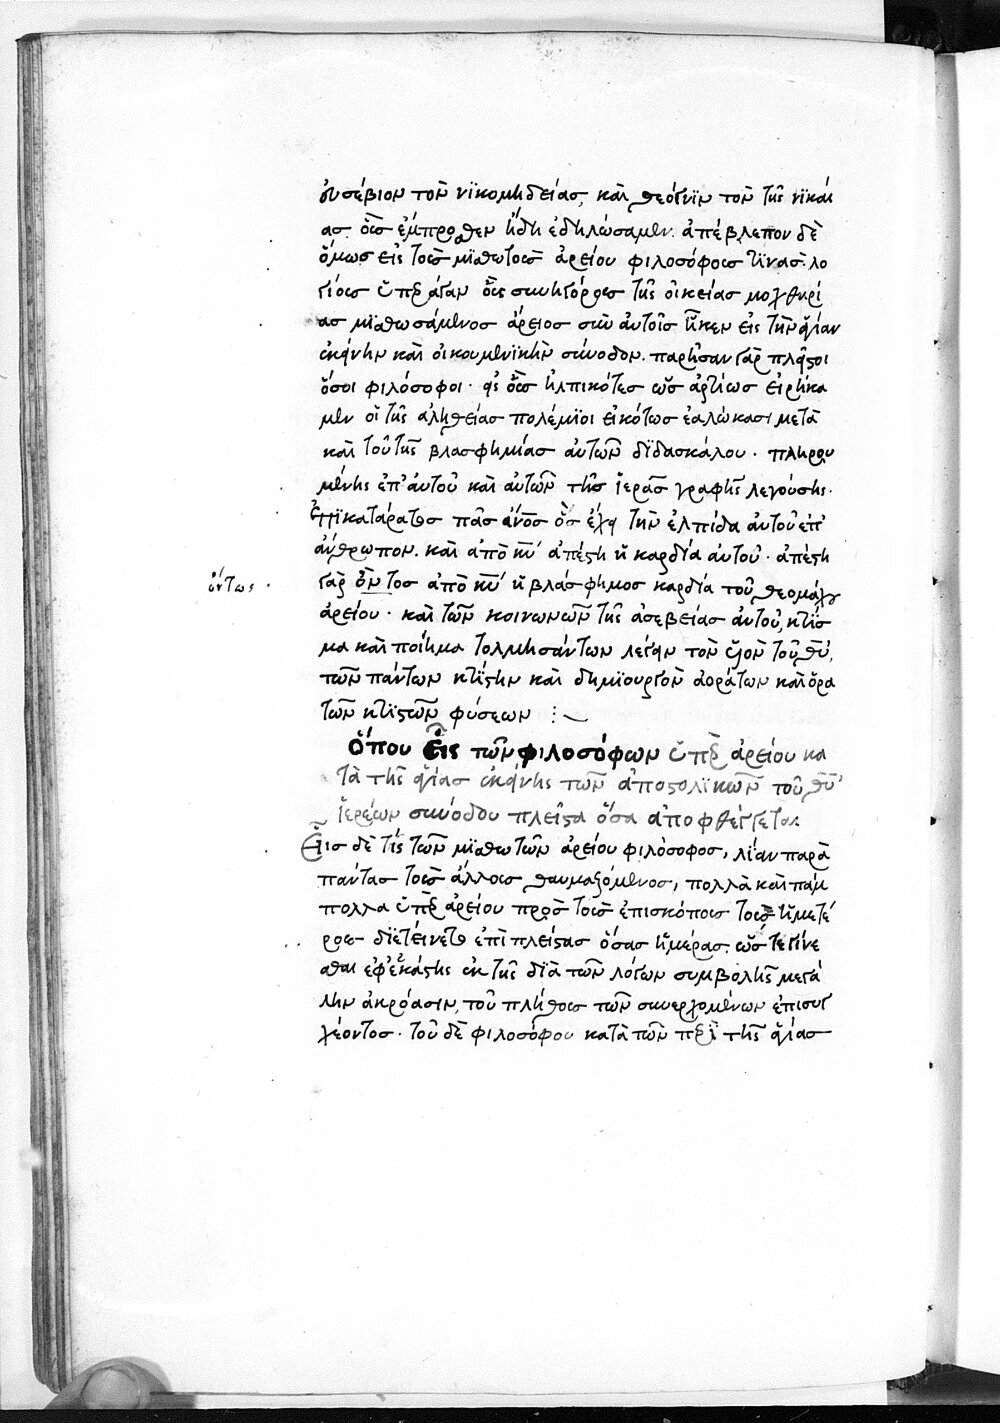 ἐυσέβιον τὸν νϊκομηδείας, καὶ θεόγνϊν τὸν τῆς νϊκαί
ας. οὓς ἔμπροσθεν ἤδη ἐδηλώσαμεν. ἀπέβλεπον δὲ
ὅμως εἰς τοὺς μϊσθωτοὺς ἀρείου φιλοσόφους τϊνὰς. λο
γίους ὑπὲρ ἄγαν οὓς συνηγόρους τῆς οἰκείας μοχθηρί
ας μϊσθωσάμενος ἄρειος σὺν ἀυτοῖς ἧκεν εἰς τὴν ἁγίαν
ἐκείνην καὶ οἰκουμενϊκὴν σύνοδον. παρῆσαν γὰρ πλεῖστοι
ὅσοι φιλόσοφοι. εἰς οὓς ἠλπικότες ὡς ἀρτίως εἰρήκα
μεν οἱ τῆς ἀληθείας πολέμϊοι εἰκότως ἑαλώκασι μετὰ
καὶ τοῦ τῆς βλασφημίας ἀυτῶν δϊδασκάλου. πληρου
μένης ἐπ' ἀυτοῦ καὶ αὐτῶν τῆς ϊερᾶς γραφῆς λεγούσης.
ἐπϊκατάρατος πᾶς ἄνος ὃς ἔχει τὴν ἐλπίδα ἀυτοῦ ἐπ'
ἄνθρωπον. καὶ ἀπὸ κυ ἀπέστη ἡ καρδία ἀυτοῦ. ἀπέστη
ὄντως
γὰρ ὄντος ἀπὸ κυ ἡ βλάσφημος καρδία τοῦ θεομάχου
ἀρείου. καὶ τῶν κοινωνῶν τῆς ἀσεβείας ἀυτοῦ, κτίϊσ
μα καὶ ποίημα τολμησάντων λέγειν τὸν υἱὸν τοῦ θυ,
τῶν πάντων κτίϊστην καὶ δημϊουργὸν ἀοράτων καὶ ὁρα
τῶν κτϊστῶν φύσεων :~
Ὅπου εἷς τῶν φιλοσόφων ὑπὲρ ἀρείου κα
τὰ τῆς ἁγίας ἐκείνης τῶν ἀποστολϊκῶν τοῦ θυ
ϊερέων συνόδου πλεῖστα ὅσα ἀποφθέγγεται
Εἷς δὲ τίς τῶν μϊσθωτῶν ἀρείου φιλόσοφος, λίαν παρὰ
πάντας τοὺς ἄλλους θαυμαζόμενος, πολλὰ καὶ πάμ
πολλα ὑπὲρ ἀρείου πρὸς τοὺς ἐπισκόπους τοὺς ἡμετέ
ρους διετείνετο ἐπὶ πλείστας ὅσας ἡμέρας. ὡς γεγίνε
σθαι ἐφ' ἑκάστης ἐκ τῆς δϊὰ τῶν λόγων συμβολῆς μεγά
λην ἀκρόασιν, τοῦ πλήθους τῶν συνερχομένων ἐπισυγ
χέοντος. τοῦ δὲ φιλοσόφου κατὰ τῶν περὶ τῆς ἁγίας